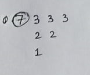 0 7 3 3 3
2 2
1